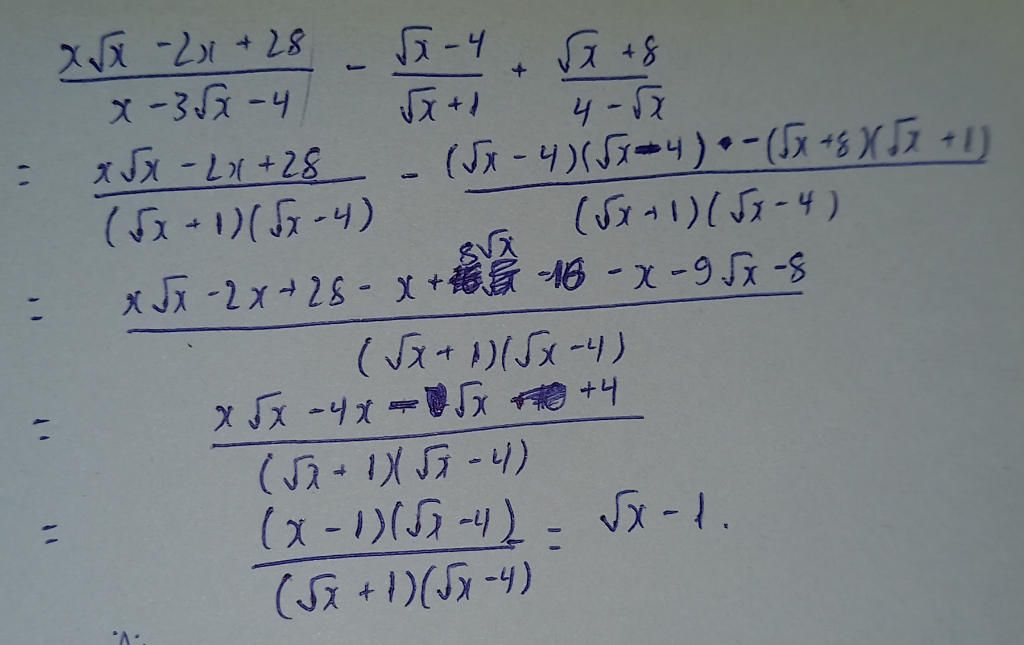 (x√x - 2x + 28)/(x - 3√x - 4) - (√x - 4)/(√x + 1) + (√x + 8)/(4 - √x)
= (x√x - 2x + 28)/((√x + 1)(√x - 4)) - ((√x - 4)(√x - 4) · -(√x + 8)(√x + 1))/((√x + 1)(√x - 4))
= (x√x - 2x + 28 - x + 8√x - 16 - x - 9√x - 8)/((√x + 1)(√x - 4))
= (x√x - 4x - √x + 4)/((√x + 1)(√x - 4))
= ((x - 1)(√x - 4))/((√x + 1)(√x - 4)) = √x - 1.